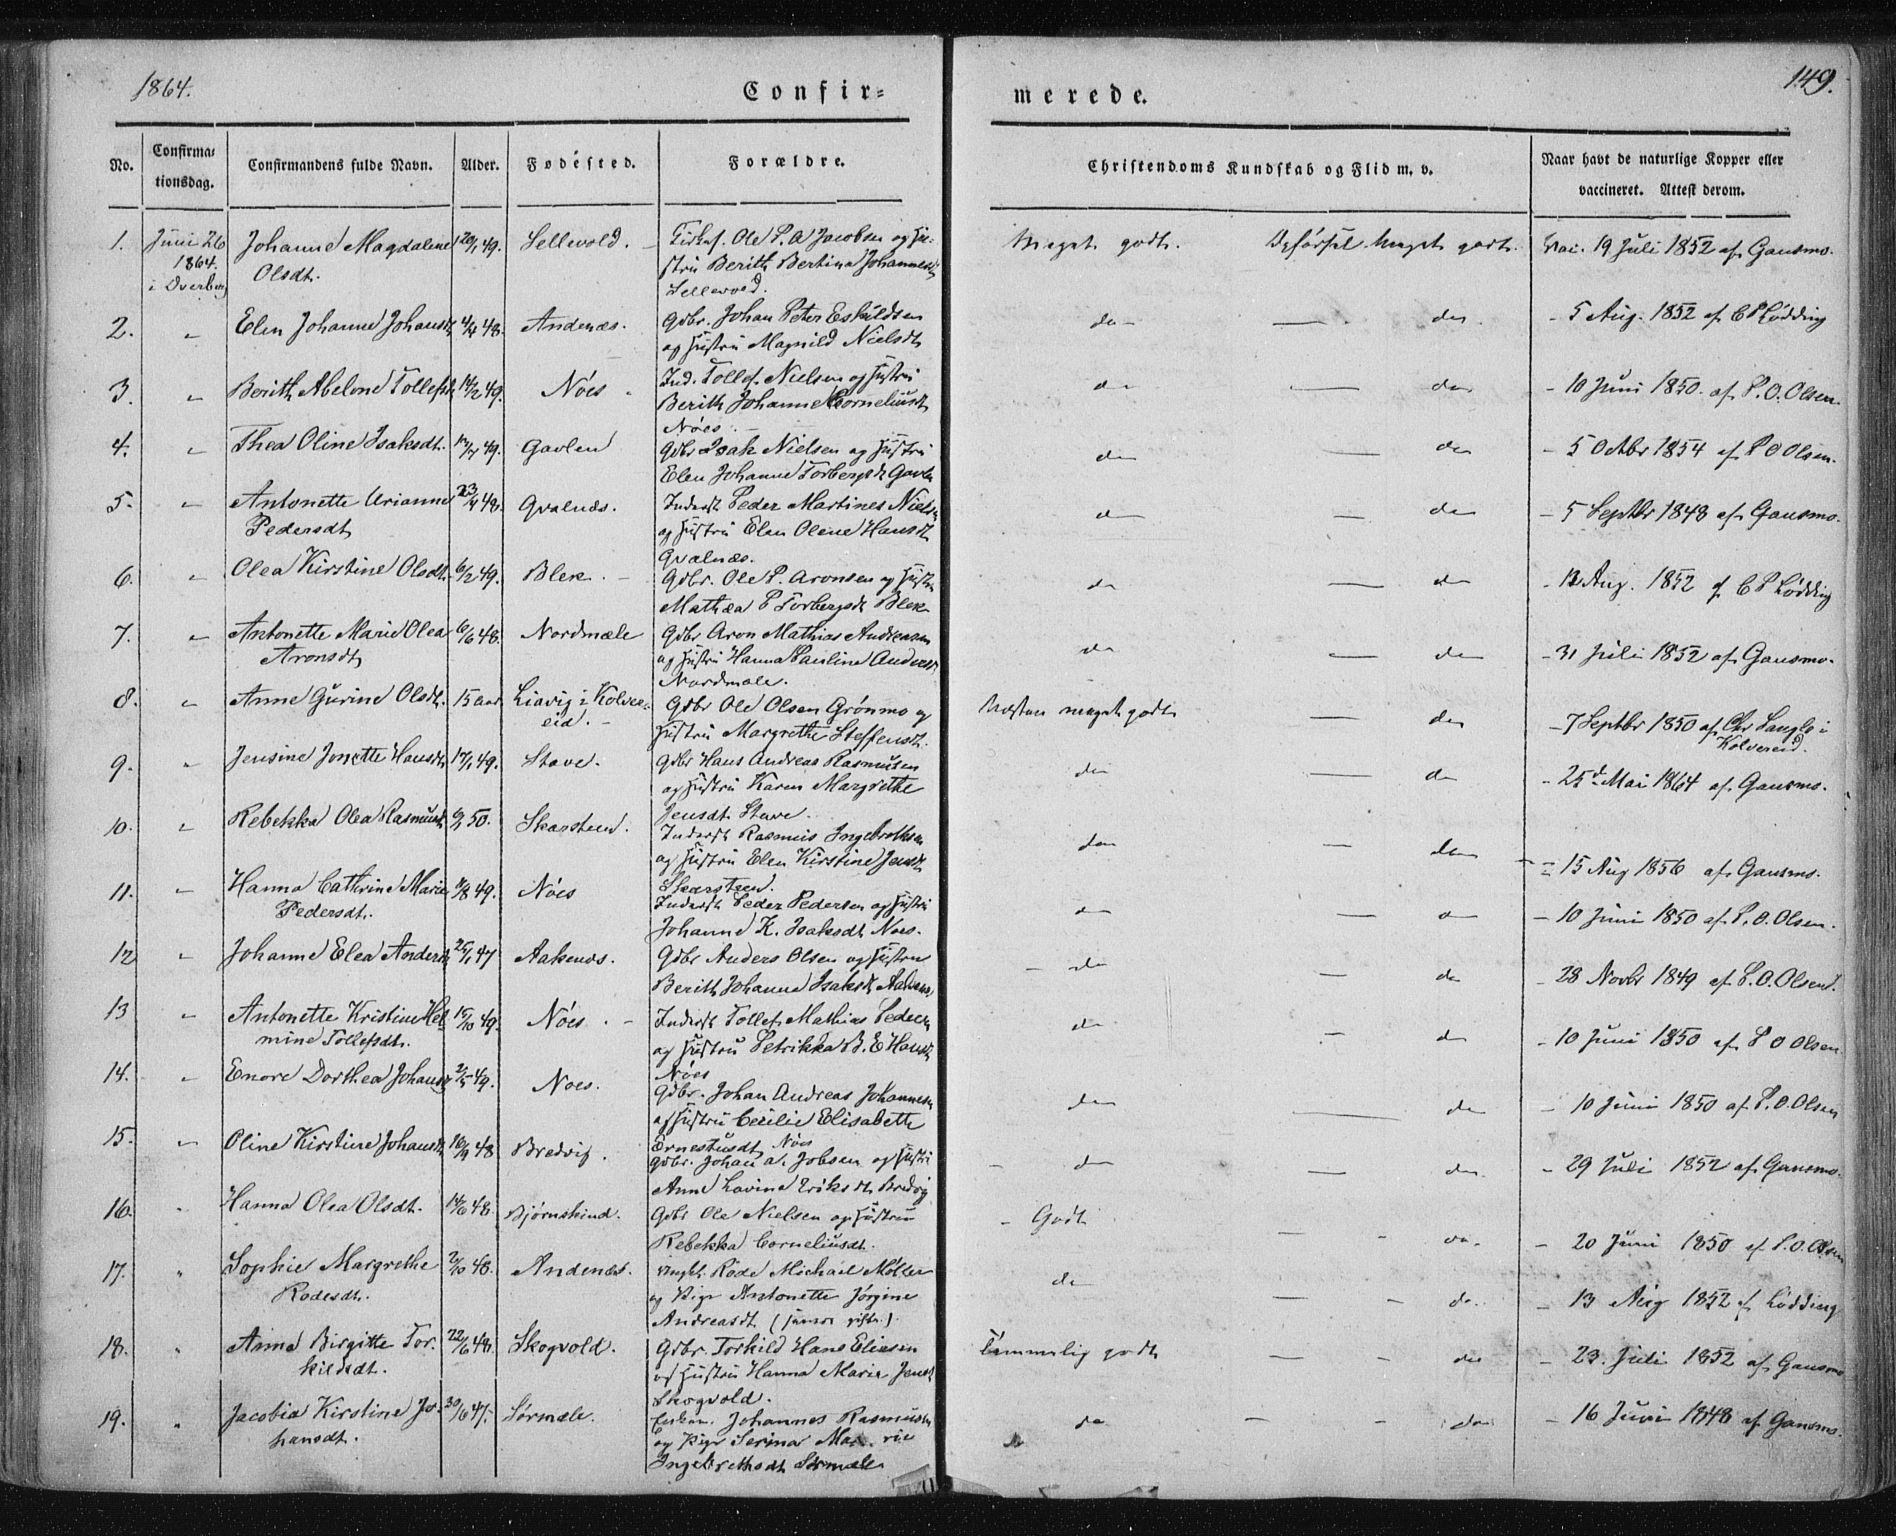 1864.
Confir-
merede.
149.
No.
Confirma-
tionsdag.
Confirmandens fulde Navn.
Alder.
Fødested.
Forældre.
Christendoms Kundskab og Flid m. v.
Naar havt de naturlige Kopper eller
vaccineret. Attest derom.
1. Juni 26 Johanne Magdalene 20/1 49. Sellevold. Ole P. A Jacobsen og Hu- Meget godt. Opførsel Meget godt. Vac. 19 Juli 1852 af Gausmo.
1864. Olsdt. stru Berith Bertina Johannesd.
i Dverberg Sellevold.
2. " Elen Johanne Johansdt 48. Andenæs. Gdbr. Johan Peter Eskildsen do — do - 5 Aug. 1852 af C P Lødding
og Hustru Magnild Nielsdt
3. " Berith Abelone Tollefsdt 14/2 49. Nöes Ind. Tollef Nielsen og Hustru do — do - 10 Juni 1850. af P. O. Olsen.
Berith Johanna Corneliusdt
Nöes.
4. " Thea Oline Isaksdt. 49. Gavlen Gdbr Isak Nielsen og Hustru do — do - 5 Octbr 1854 af P O Olsen.
Elen Johanne Torbergsdt Gavlen
5. " Antonette Urianne 23/4 48. Qvalnæs. Inderst Peder Martines Nielsen do — do - 5 Septbr 1848 af Gausmo.
Pedersdt og Hustru Elen Olene Hansdt
Qvalnæs.
6. " Olea Kirstine Olsdt. 6/2 49. Blek. Gdbr. Ole P. Aronsen og Hustru do — do - 12 Aug. 1852 af C P Lødding
Mathea P Torbergsdt Blek
7. " Antonette Marie Olea 6/6 48. Nordmæle Gdbr Aron Mathias Andreasen do — do - 31 Juli 1852 af Gausmo.
Aronsdt og Hustru Hanna Paulina Andersdt
Nordmæle.
8. " Anne Gurine Olsdt. 15 aar Liavig i Kolver- Gdbr Ole Olsen Grönmo og Næsten meget godt — do - 7 Septbr 1850 af Chr Langle i
eid. Hustru Margrethe Steffensdt. Kolvereid.
9. " Jensine Jonette Hansdt 17/1 49. Stave. Gdbr Hans Andreas Rasmusen do — do - 25d Mai 1864 af Gausmo.
og Hustru Karen Margrethe
Jensdt Stave.
10. " Rebekka Olea Rasmusdt 50. Skarsteen. Inderst Rasmus Ingebrethsen do — do - 15 Aug 1856 af Gausmo.
og Hustru Elen Kirstine Jensdt
Skarsteen.
11. " Hanna Cathrine Marie 49. Nöes Inderst Peder Pedersen og Hustru do — do - 10 Juni 1850 af P. O. Olsen.
Pedersdt. Johanne K. Isaksdt Noes.
12 " Johanne Elea Andersdt 25/1 47 Aakenæs. Gdbr Anders Olsen og Hustru do — do - 28 Novbr 1849 af P. O. Olsen.
Berith Johanna Isaksdt Aakenæs
13 " Antonette Kristine Hel- 15/10 49. Nöes Inderst Tollef Mathias Pedersen do - do - 10 Juni 1850 af P O Olsen
mine Tollefsdt. og Hustru Petrikka B. E Hansdt
Nöes
14. " Enore Dorthea Johansdt 2/5 49. Noes. Gdbr. Johan Andreas Johannesen do — do - 10 Juni 1850 af P. O. Olsen
og Hustru Cecilie Elisabette
Ernestusdt Nöes
15. " Oline Kirstine Johansdt 16/9 48 Bredvig. Gdbr. Johan A. Jobsen og Hustru do — do - 29 Juli 1852 af Gausmo.
Anne Lovina Eriksdt Bredvig
16. " Hanna Olea Olsdt. 14/6 48. Bjørnskind. Gdbr Ole Nielsen og Hustru Godt — do. - 20 Juni 1850 af P. O. Olsen
Rebekka Corneliusdt.
17. " Sophie Margrethe 2/10 48. Andenæs. Röde Michael Möller do — - do. - 13 Aug 1852 af Lødding
Rodesdt. og Pige Antonette Jörgine
Andreasdt
18. " Anna Birgitte Tor- 22/6 48. Skogvold. Gdbr. Torkild Hans Eliesen Temmelig godt — - do - 23. Juli 1852 af Gausmo
kildsdt. og Hustru Hanna Marie Jensdt
Skogvold.
19. " Jacobia Kirstine Jo- 30/6 47. Sörmæle. Johannes Rasmusen do - - do - 16 Juni 1848 af Gausmo.
hansdt. og Pige Serina Marie
Ingebrethsdt Sörmæle